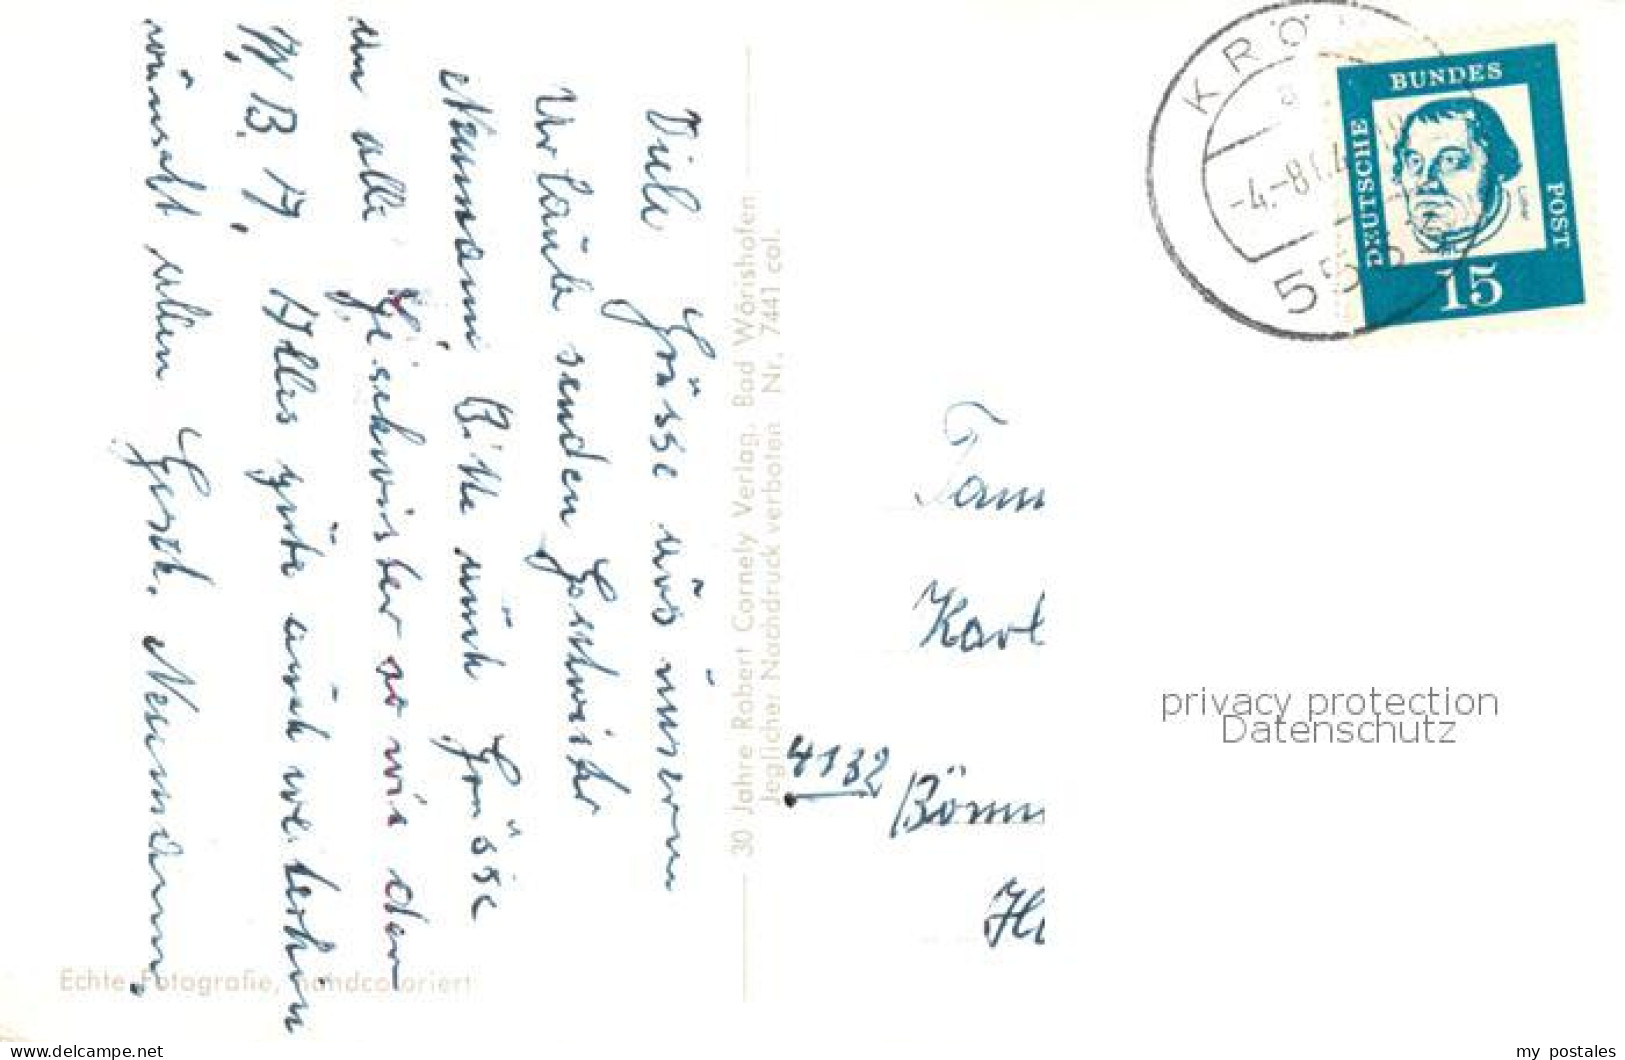 Viele Grüsse aus unserm
Urlaub senden Geschwister
Neumann, Bitte auch Grüsse
an alle Geschwister so wie den
W. B. A. Alles gute auch weiterhin
wünscht allen Gesch. Neumann.
Echte Fotografie, handcoloriert
30 Jahre Robert Cornely Verlag, Bad Wörishofen
Jeglicher Nachdruck verboten Nr. 7441 col.
KRÖ
-4.-8
55
DEUTSCHE BUNDES POST
15
Fam
Karl
4132
Bönn
privacy protection
Datenschutz
www.delcampe.net
my_postales